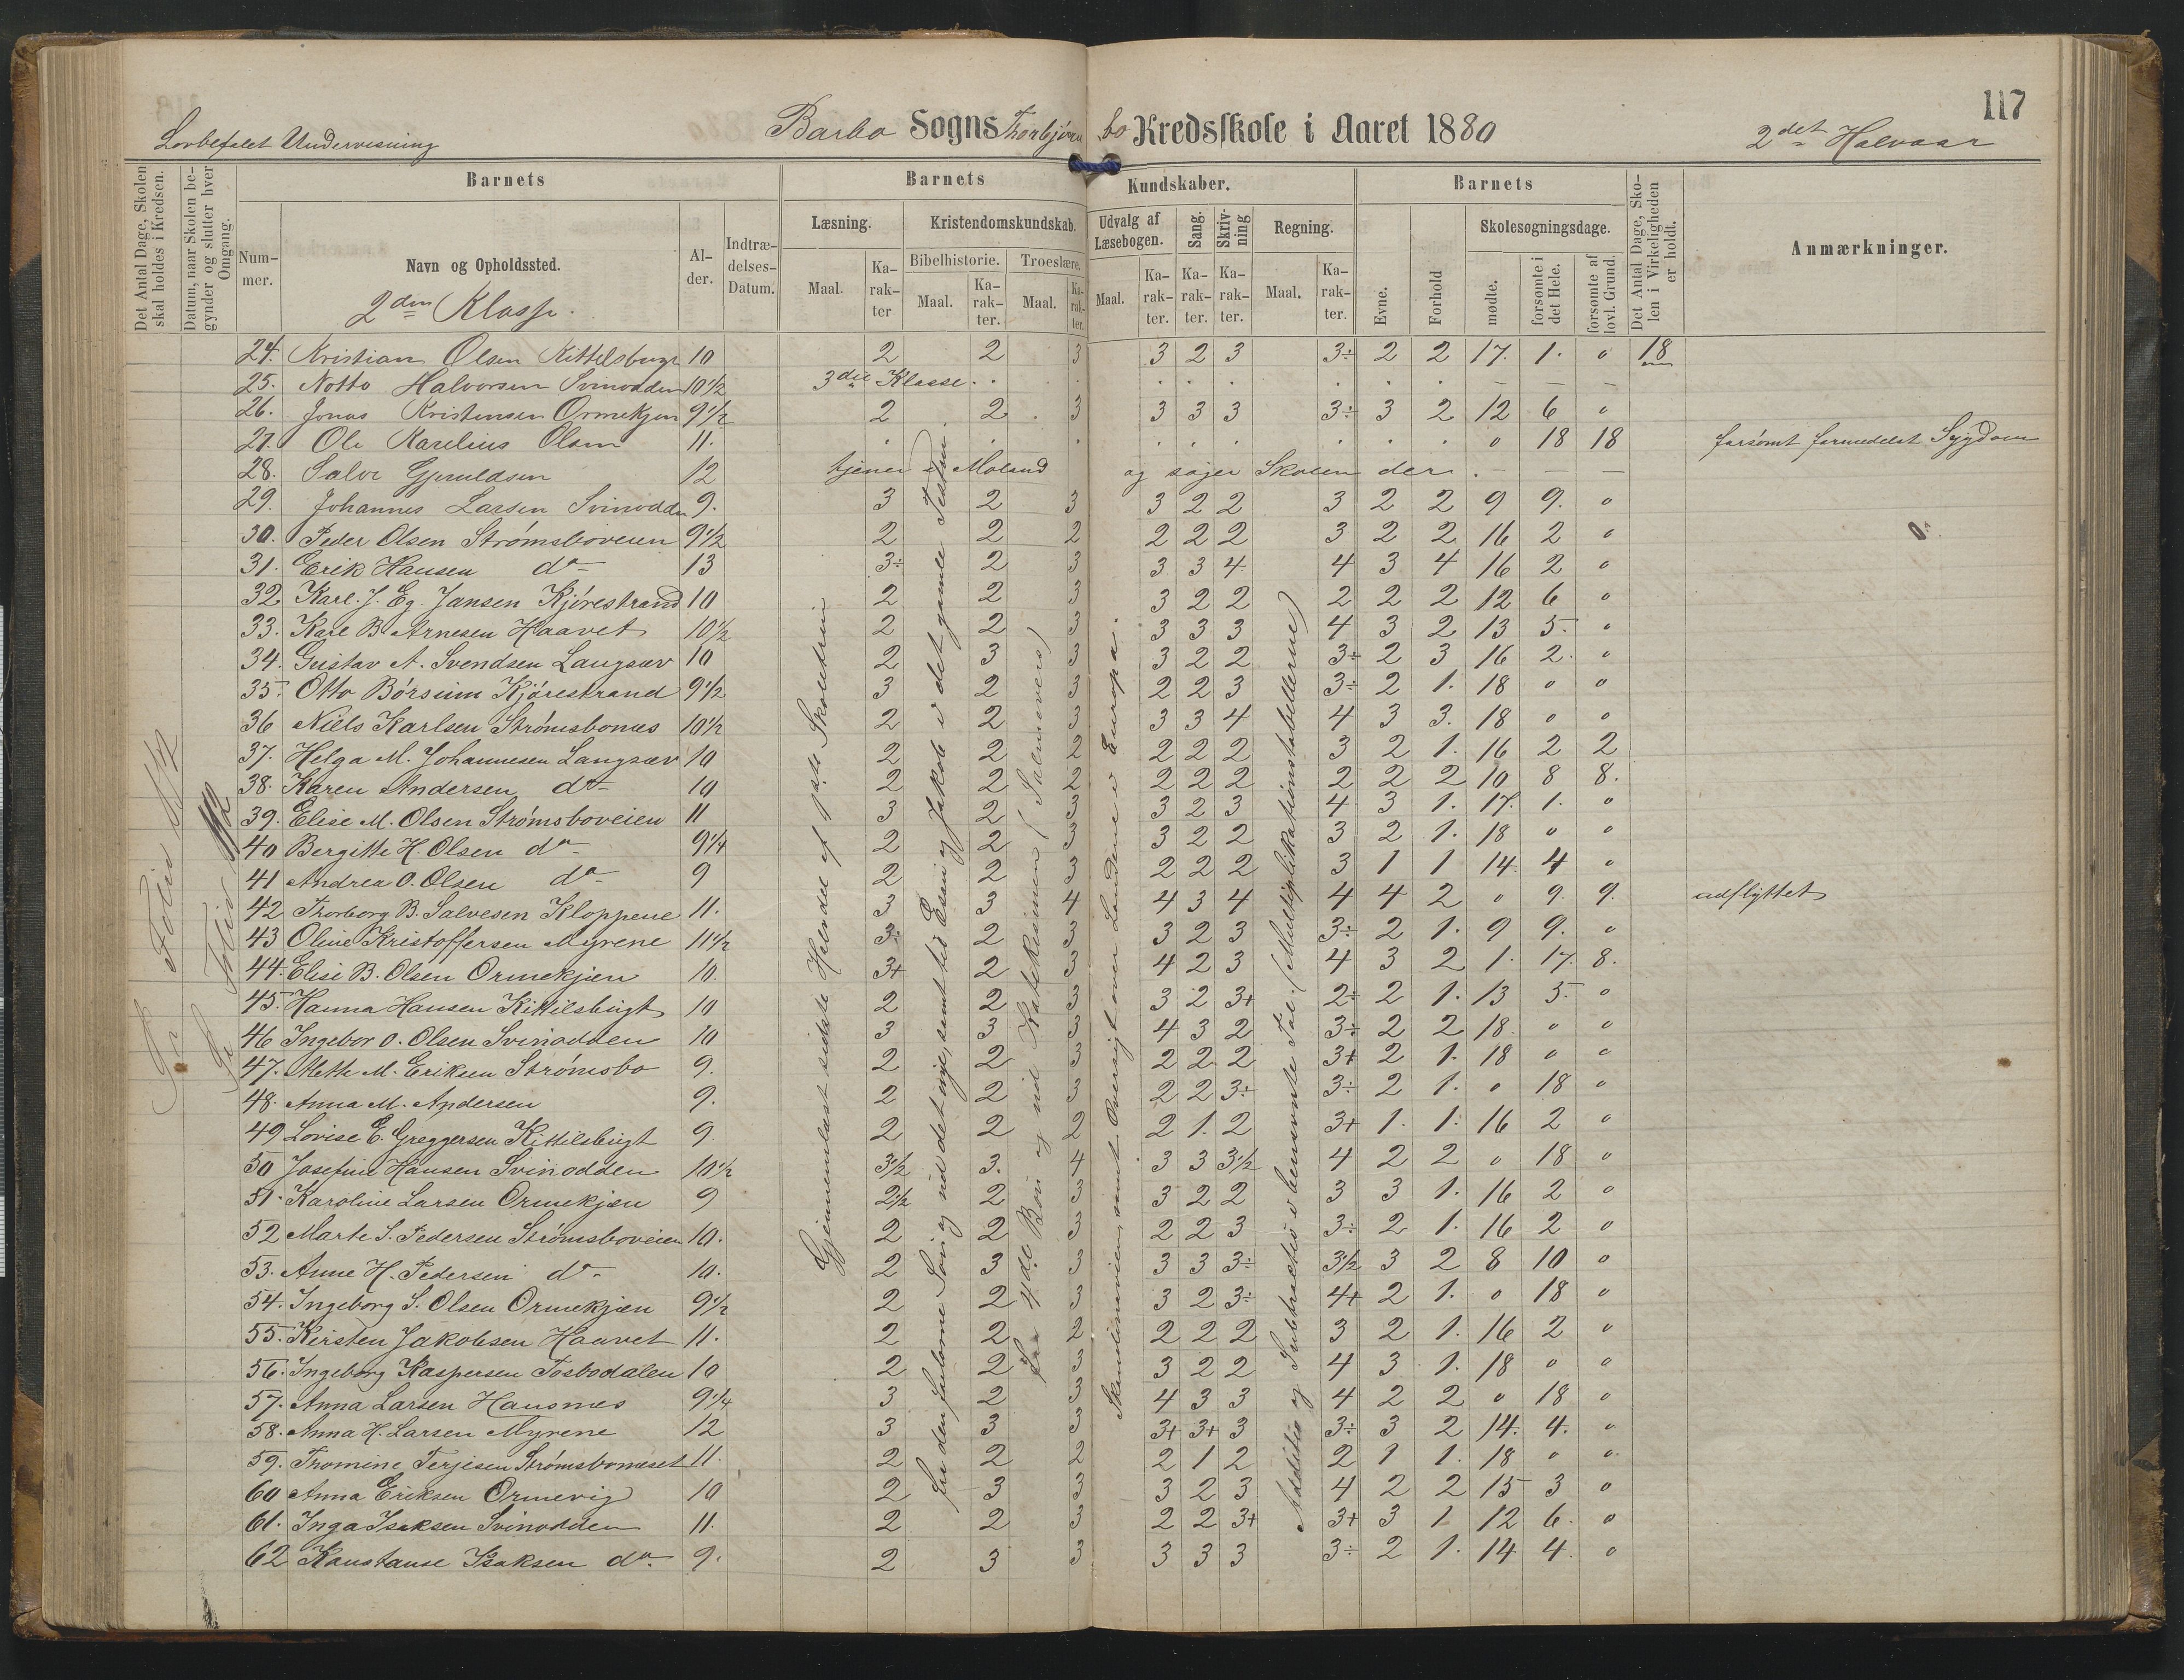 117
Lovbefalet Undervisning Barbo Sogns Thorbjørnsbo Kredsskole i Aaret 1880 2det Halvaar
Det Antal Dage, Skolen skal holdes i Kredsen.
Datum, naar Skolen begynder og slutter hver Omgang.
Barnets
Nummer.
Navn og Opholdssted.
2den Klasse.
Alder.
Indtrædelses-Datum.
Barnets Kundskaber.
Læsning.
Maal. Karakter
Kristendomskundskab.
Bibelhistorie. Troeslære.
Maal. Karakter. Maal. Karakter.
Udvalg af Læsebogen.
Maal. Karakter.
Sang. Karakter.
Skrivning Karakter.
Regning.
Maal. Karakter.
Barnets
Evne. Forhold
Skolesøgningsdage.
mødte. forsømte i det Hele. forsømte af lovl. Grund.
Det Antal Dage, Skolen i Virkeligheden er holdt.
Anmærkninger.
24. Kristian Olsen Kittelsbugt 10 2 2 3 3 2 3 3÷ 2 2 17. 1. 0 18
25. Notto Halvorsen Svinodden 10 1/2 3die Klasse
26. Jonas Kristensen Ormekjen 9 1/2 2 2 3 3 3 3 3÷ 3 2 12 6 0
27. Ole Karelius Olsen 11. 0 18 18 forsømt formedelst Sygdom
28. Salve Gjeruldsen 12 tjener i Moland og søger Skolen der.
29. Johannes Larsen Svinodden 9. 3 2 3 3 2 2 3 2 2 9 9. 0
30. Peder Olsen Strømsboveien 9 1/2 2 2 2 2 2 2 3 2 2 16 2 0
31. Erik Hansen do 13 3÷ 2 3 3 3 4 4 3 4 16 2 0
32 Karl. J. Eg. Jansen Kjørestrand 10 2 2 3 3 2 2 2 2 2 12 6 0
33. Karl B. Arnesen Haavet 10 1/2 2 2 3 3 3 3 4 3 2 13 5. 0
34. Gustav A. Svendsen Langsæv 10 2 3 3 3 2 2 3÷ 2 3 16 2. 0
35. Otto Børsum Kjørestrand 9 1/2 3 2 3 2 2 3 3÷ 2 1. 18 0 0
36 Niels Karlsen Strømsbonæs 10 1/2 2 2 3 3 3 4 4 3 3. 18 0 0
37. Helga M. Johannesen Langsæv 10 2 2 2 2 2 2 3 2 1. 16 2 2
38. Karen Andersen do 10 2 2 2 2 2 2 2 2 2 10 8 8.
39. Elise M. Olsen Strømsboveien 11 3 2 3 3 2 3 4 3 1. 17. 1. 0
40 Bergitte H. Olsen do 9 1/4 2 2 3 3 2 2 3 2 1. 18 0 0
41 Andrea O. Olsen do 9 2 2 3 2 2 2 3 1 1 14. 4 0
42 Thorborg B. Salvesen Kloppene 11. 3 3 4 4 3 4 4 4 2 0 9. 9. udflyttet
43 Oline Kristoffersen Myrene 11 1/2 3÷ 2 3 3 2 3 3÷ 2 1. 9 9. 0
44. Elise B. Olsen Ormekjen 10. 3+ 2 3 4 2 3 4 3 2 1. 17. 8.
45. Hanna Hansen Kittilsbugt 10 2 2 3 3 2 3+ 2÷ 2 1. 13 5. 0
46 Ingebor O. Olsen Svinodden 10 3 3 3 4 3 2 3÷ 2 2 18. 0 0
47. Mette M. Eriksen Strømsbo 9. 2 2 3 2 2 2 3+ 2 1. 18 0 0
48. Anna M. Andersen 9. 2 2 3 2 2 3÷ 3÷ 2 1. 0 18 0
49 Lovise E. Greggersen Kittilsbugt 9. 2 2 2 2 1. 2 3+ 1. 1. 16 2 0
50 Josefine Hansen Svinodden 10 1/2 3 1/2 3. 4 3 3 3 1/2 4 2 2 0 18 0
51. Karoline Larsen Ormekjen 9 2 1/2 2 3 3 2 2 3 3 1. 16 2 0
52 Marte S. Pedersen Strømsboveien 10. 2 2 3 2 2 3 3÷ 2 1. 16 2 0
53. Anne H. Pedersen do 10. 2 3 3 3 3 3÷ 3 1/2 3 2 8 10 0
54. Ingeborg S. Olsen Ormekjen 9 1/2 2 2 3 3 2 3÷ 4+ 2 1. 0 18 0
55. Kirsten Jakobsen Haavet 11. 2 2 2 2 2 2 3 2 1. 16 2 0
56. Ingeborg Kaspersen Tosbodalen 10 2 2 3 3 2 2 4 3 1. 18 0 0
57. Anna Larsen Hausnes 9 1/4 3 2 3 4 3 3 4 2 2 0 18 0
58. Anna H. Larsen Myrene 12 3 3 3 3+ 3+ 3 3÷ 3 2 14. 4. 0
59. Thomine Terjesen Strømsbonæset 11. 2 2 2 2 1 2 2 1 1. 18 0 0
60 Anna Eriksen Ormevig 10 2 3 3 3 2 3 4 2 2 15 3 0
61. Inga Isaksen Svinodden 11. 2 2 3 2 2 3+ 3+ 3 1 12 6. 0
62 Konstanse Isaksen do. 9. 2 3 3 3 3 3 3÷ 2 1. 14 4. 0
Se Folio
Se Folio 112
Gjennemlæst sidste Halvdel af 1ste Skoletrin
Fra den forlorne Søn og ud det nye, samt til Esau og Jakob i det gamle Testm.
Fra 4de Bøn og ud Katekismen (Salmevers)
Skandinavien, samt Oversigt over Landene i Europa.
Addition og Subtraktion i benævnte Tal. (Multiplikationstabellerne)